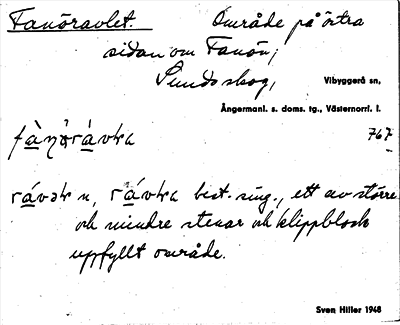 Fanöravlet. Område på östra
sidan om Fanön;
Sundsskog,
Vibyggerå sn,
Ångermanl. s. doms. tg., Västernorrl. l.
767
rávək n, rávkɐ best. sing., ett av större
och mindre stenar och klippblock
uppfyllt område.
Sven Hiller 1948